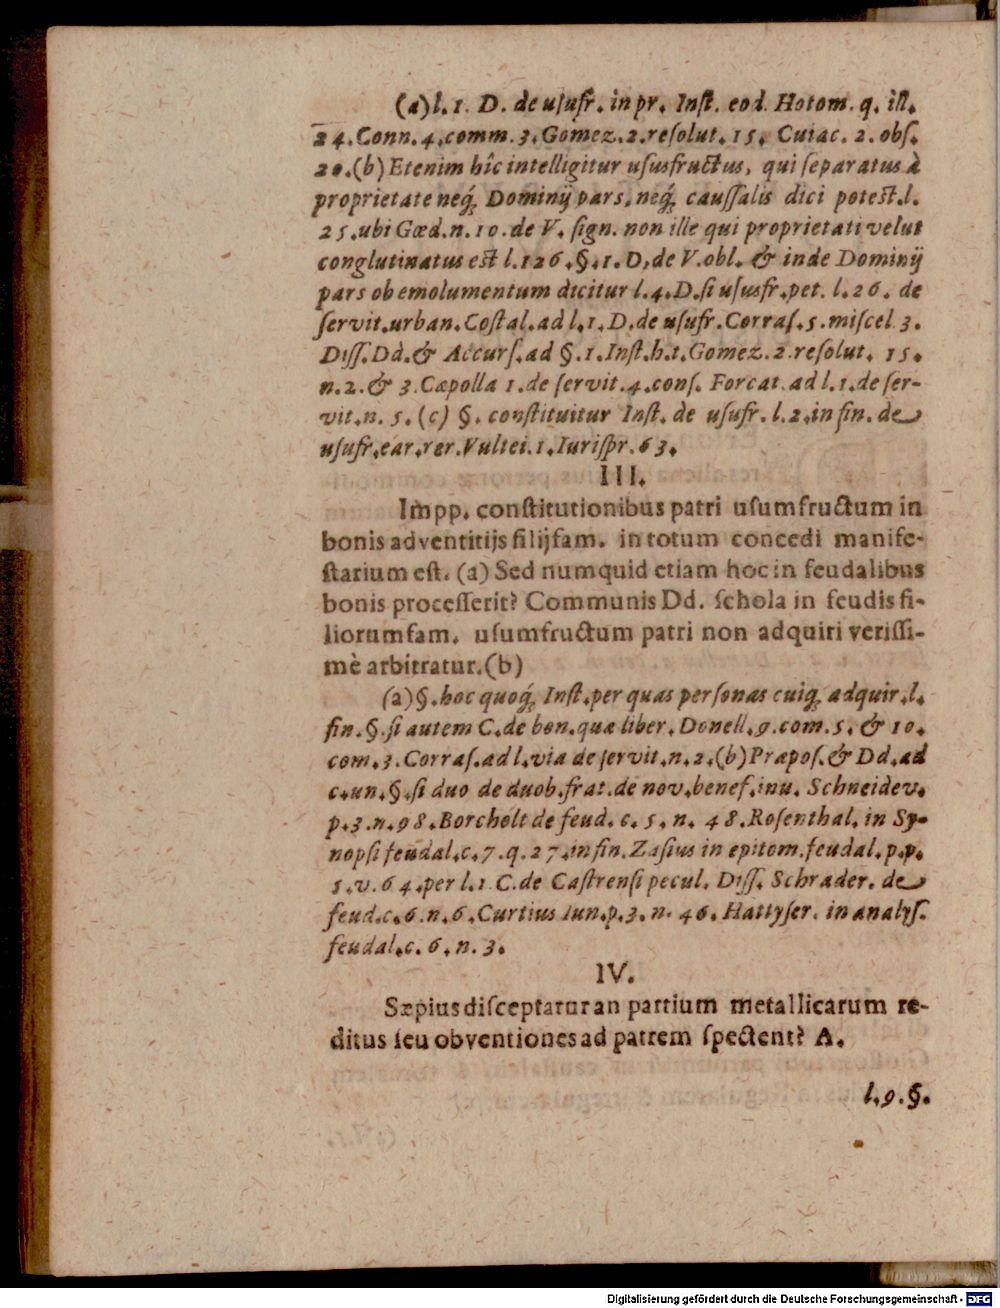 (a) l. 1. D. de uſufr. in pr. Inſt. eod. Hotom. q. ill.
24. Conn. 4. comm. 3. Gomez. 2. reſolut. 15. Cuiac. 2. obſ.
20. (b) Etenim hîc intelligitur uſusfructus, qui ſeparatus à
proprietate neq́; Dominij pars, neq́; cauſſalis dici poteſt. l.
25. ubi Gœd. n. 10. de V. ſign. non ille qui proprietati velut
conglutinatus eſt l. 126. §. 1. D. de V. obl. & inde Dominij
pars ob emolumentum dicitur l. 4. D. ſi uſusfr. pet. l. 26. de
ſervit. urban. Coſtal. ad l. 1. D. de uſufr. Corraſ. 5. miſcel 3.
Diſſ. Dd. & Accurſ. ad §. 1. Inſt. h. t. Gomez. 2. reſolut. 15.
n. 2. & 3. Cæpolla 1. de ſervit. 4. conſ. Forcat. ad l. 1. de ſer-
vit. n. 5. (c) §. conſtituitur Inſt. de uſufr. l. 2. in fin. de
uſufr. ear. rer. Vultei. 1. Iuriſpr. 63.
III.
Impp. conſtitutionibus patri uſumfructum in
bonis adventitijs filijfam. in totum concedi manife-
ſtarium eſt. (a) Sed numquid etiam hoc in feudalibus
bonis proceſſerit? Communis Dd. ſchola in feudis fi-
liorumfam. uſumfructum patri non adquiri veriſſi-
mè arbitratur. (b)
(a) §. hoc quoq́; Inſt. per quas perſonas cuiq; adquir. l.
fin. §. ſi autem C. de bon. quæ liber. Donell. 9. com. 5. & 10.
com. 3. Corraſ. ad l. via de ſervit. n. 2. (b) Præpoſ. & Dd. ad
c. un. §. ſi duo de duob. frat. de nov. benef. inu. Schneidev.
p. 3. n. 98. Borcholt de feud. c. 5. n. 48. Roſenthal. in Sy-
nopſi feudal. c. 7. q. 27. in fin. Zaſius in epitom. feudal. p. p.
5. v. 64. per l. 1 C. de Caſtrenſi pecul. Diſſ. Schrader. de
feud. c. 6. n. 6. Curtius Iun. p. 3. n. 46. Hattyſer. in analyſ.
feudal. c. 6. n. 3.
IV.
Sæpius diſceptatur an partium metallicarum re-
ditus ſeu obventiones ad patrem ſpectent? A.
l. 9. §.
Digitalisierung gefördert durch die Deutsche Forschungsgemeinschaft - DFG